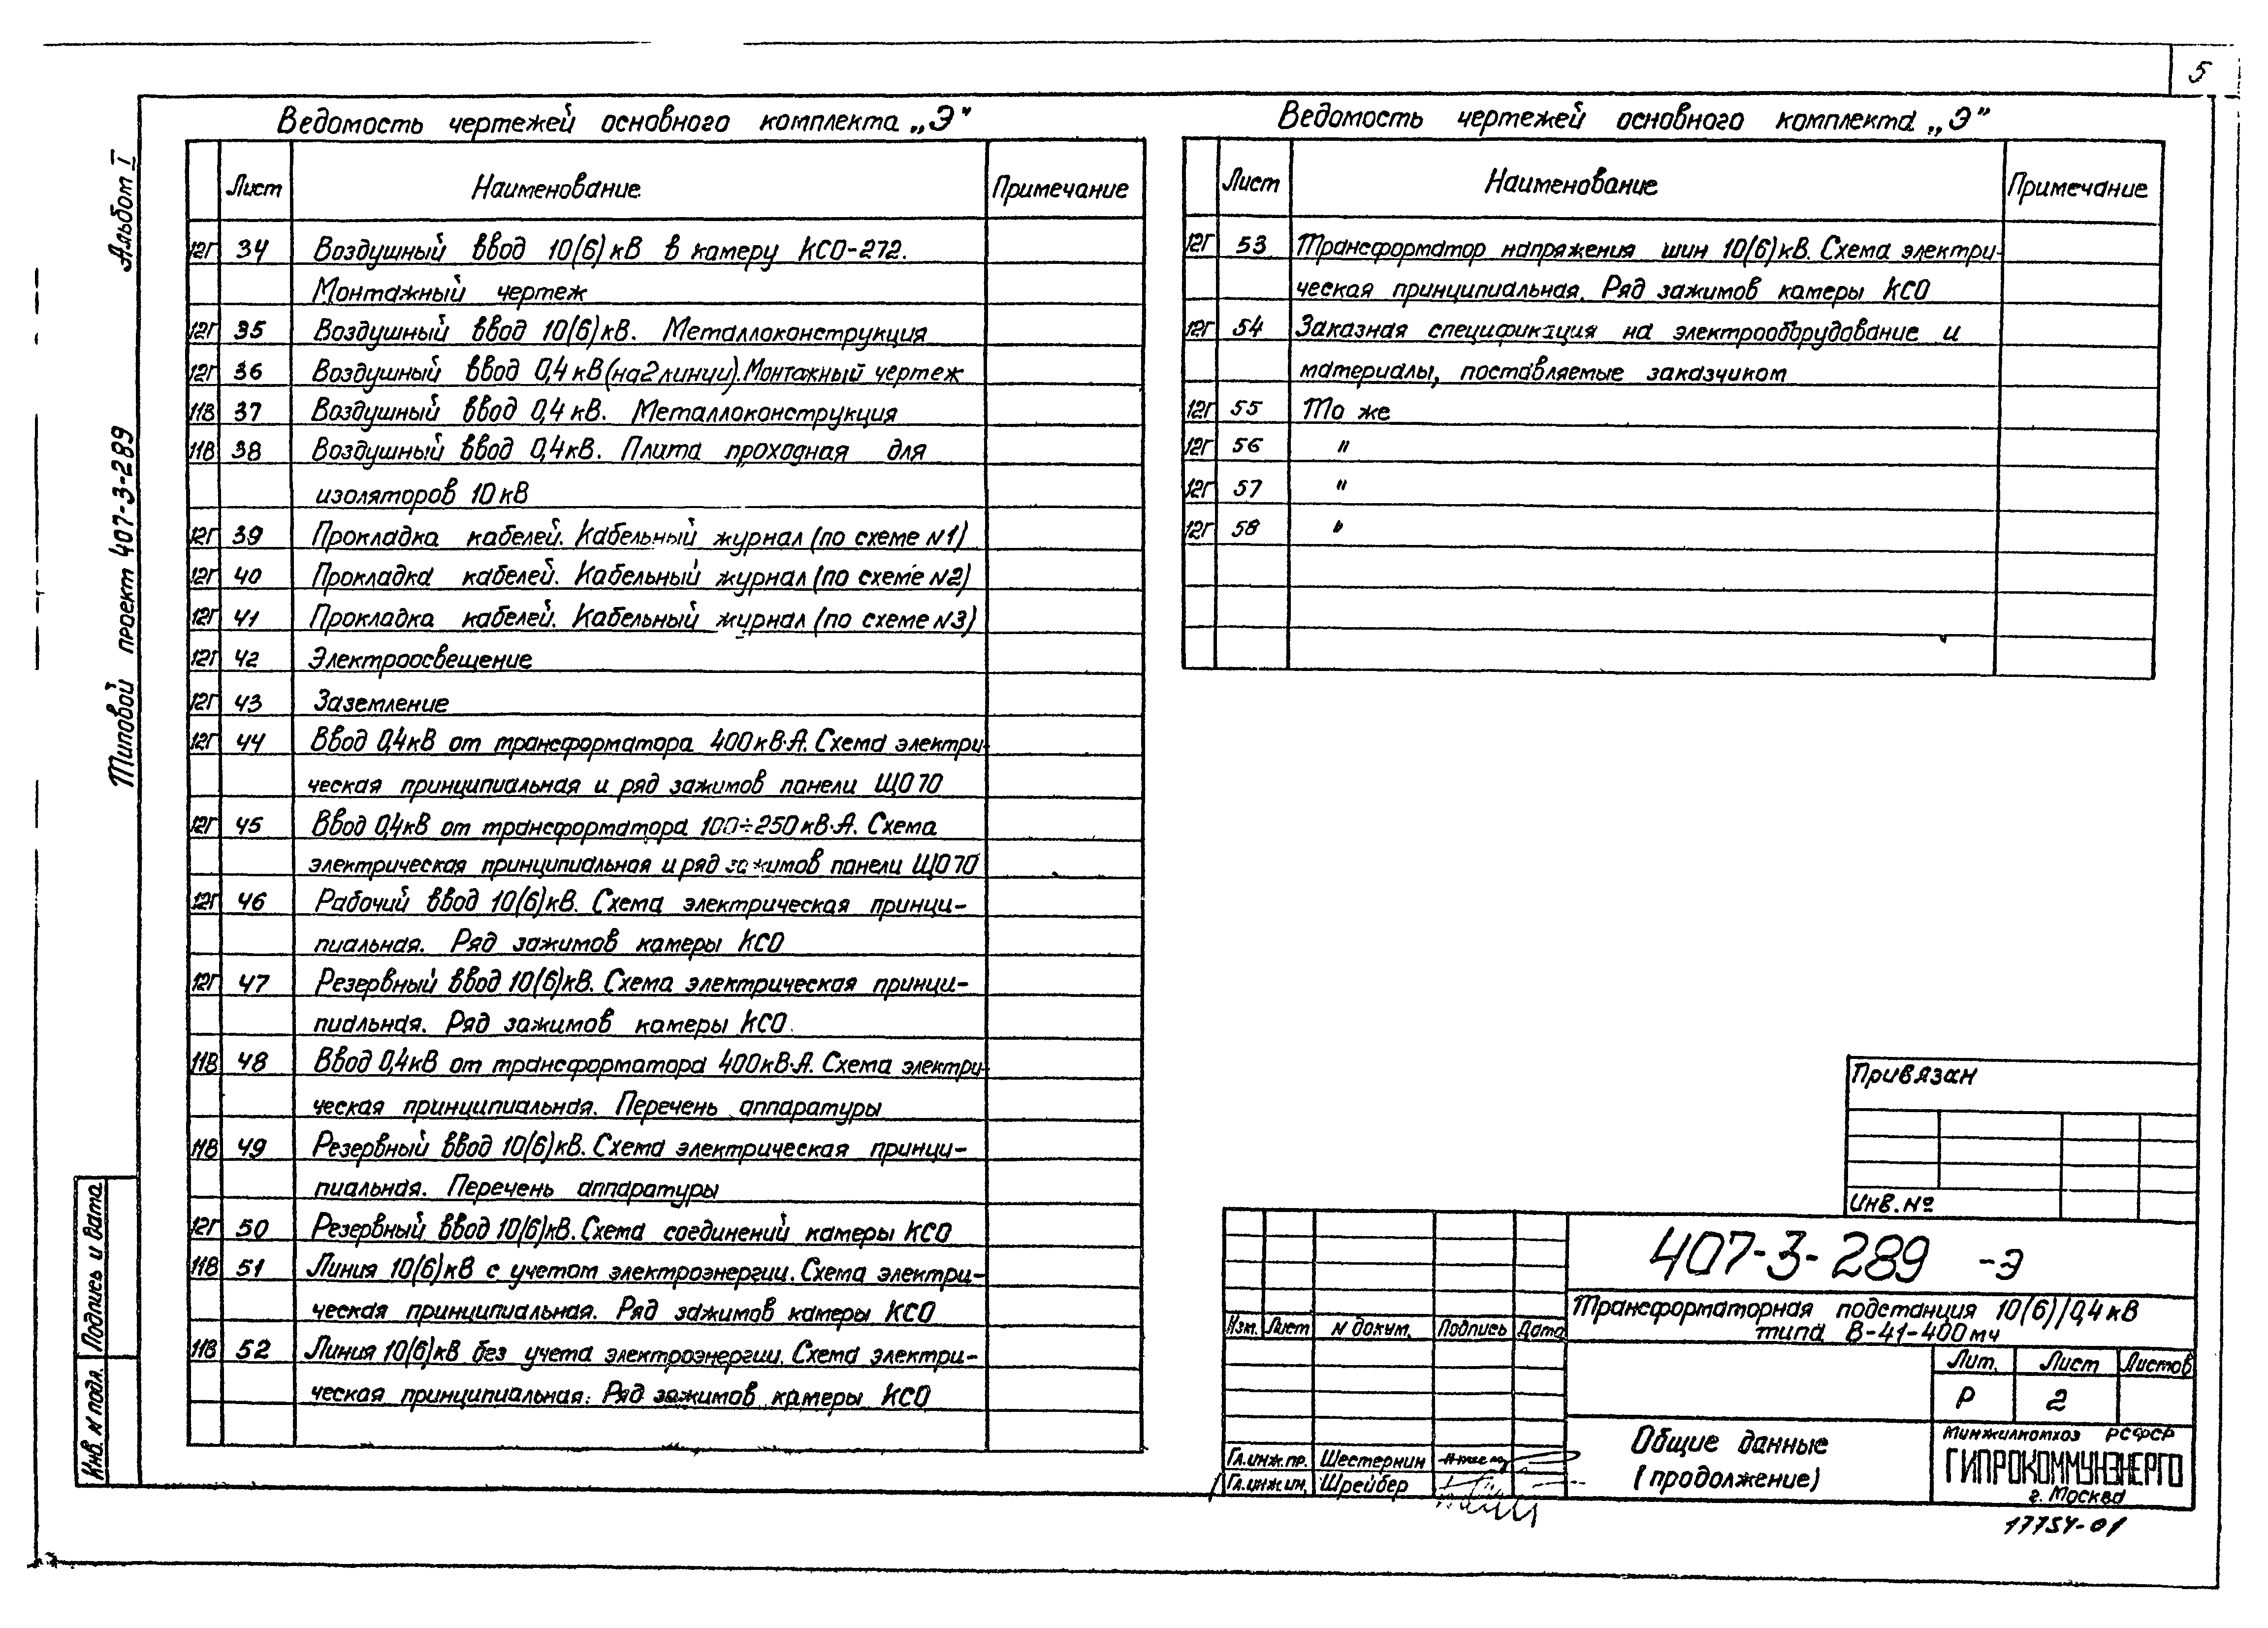 5
Альбом I
Типовой проект 407-3-289
Ведомость чертежей основного комплекта „Э"
Лист Наименование Примечание
12Г 34 Воздушный ввод 10(6) кВ в камеру КСО-272.
Монтажный чертеж
12Г 35 Воздушный ввод 10(6) кВ. Металлоконструкция
12Г 36 Воздушный ввод 0,4 кВ (на 2 линии). Монтажный чертеж
11В 37 Воздушный ввод 0,4 кВ. Металлоконструкция
11В 38 Воздушный ввод 0,4 кВ. Плита проходная для
изоляторов 10 кВ
12Г 39 Прокладка кабелей. Кабельный журнал (по схеме N1)
12Г 40 Прокладка кабелей. Кабельный журнал (по схеме N2)
12Г 41 Прокладка кабелей. Кабельный журнал (по схеме N3)
12Г 42 Электроосвещение
12Г 43 Заземление
12Г 44 Ввод 0,4кВ от трансформатора 400 кВ·А. Схема электри-
ческая принципиальная и ряд зажимов панели ЩО 70
12Г 45 Ввод 0,4кВ от трансформатора 100÷250 кВ·А. Схема
электрическая принципиальная и ряд зажимов панели ЩО 70
12Г 46 Рабочий ввод 10(6)кВ. Схема электрическая принци-
пиальная. Ряд зажимов камеры КСО
12Г 47 Резервный ввод 10(6)кВ. Схема электрическая принци-
пиальная. Ряд зажимов камеры КСО.
11В 48 Ввод 0,4кВ от трансформатора 400кВ·А. Схема электри-
ческая принципиальная. Перечень аппаратуры
11В 49 Резервный ввод 10(6)кВ. Схема электрическая принци-
пиальная. Перечень аппаратуры
12Г 50 Резервный ввод 10(6)кВ. Схема соединений камеры КСО
11В 51 Линия 10(6)кВ с учетом электроэнергии. Схема электри-
ческая принципиальная. Ряд зажимов камеры КСО
11В 52 Линия 10(6)кВ без учета электроэнергии. Схема электри-
ческая принципиальная. Ряд зажимов камеры КСО
Ведомость чертежей основного комплекта „Э"
Лист Наименование Примечание
12Г 53 Трансформатор напряжения шин 10(6)кВ. Схема электри-
ческая принципиальная. Ряд зажимов камеры КСО
12Г 54 Заказная спецификация на электрооборудование и
материалы, поставляемые заказчиком
12Г 55 То же
12Г 56 "
12Г 57 "
12Г 58 "
Привязан
Инв. №
407-3-289 -Э
Трансформаторная подстанция 10(6)/0,4 кВ
типа В-41-400 мч
Изм. Лист N докум. Подпись Дата
Лит. Лист Листов
Р 2
Общие данные
(продолжение)
Минжилкомхоз РСФСР
ГИПРОКОММУНЭНЕРГО
г. Москва
Гл.инж.пр. Шестернин
Гл.инж.ин. Шрейбер
17754-01
Подпись и дата
Инв. N подл.